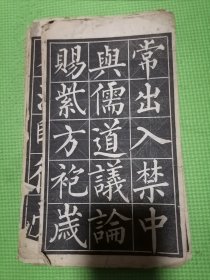 常出入禁中
與儒道議論
賜紫方袍歲